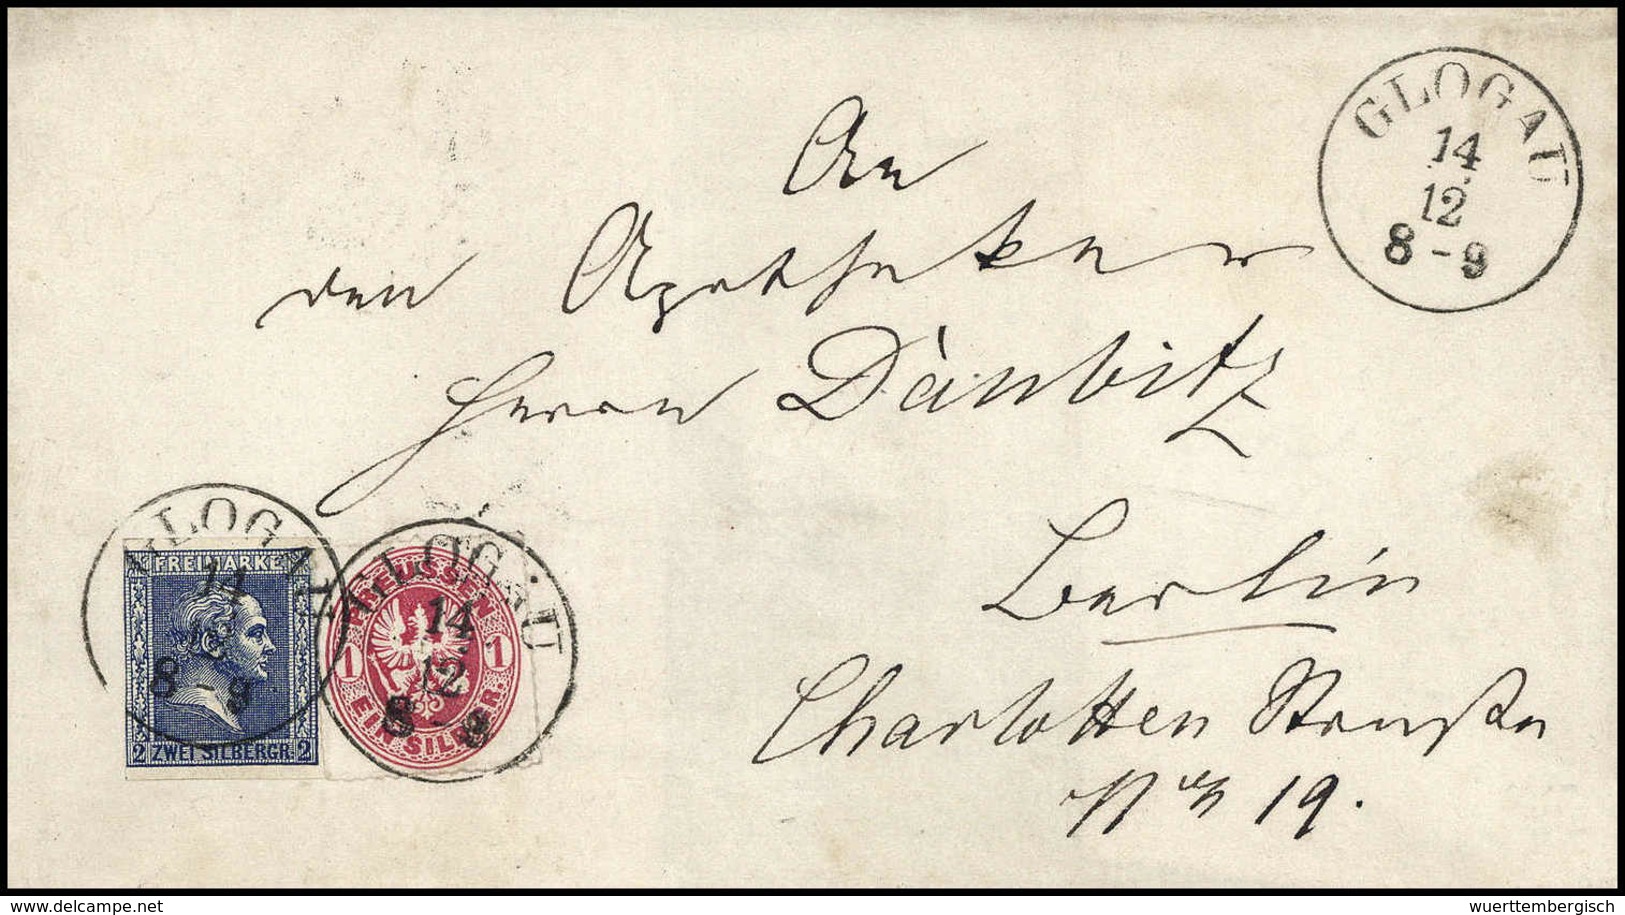 GLOGAU
14
12
8 - 9
An
den Apotheker
Herrn Daubitz
Berlin
Charlotten Straße
No 19.
GLOGAU
14
12
8 - 9
FREIMARKE
2 ZWEI SILBERGR. 2
GLOGAU
14
12
8 - 9
PREUSSEN
1 1
EIN SILBERGR.
www.delcampe.net
wuerttembergisch